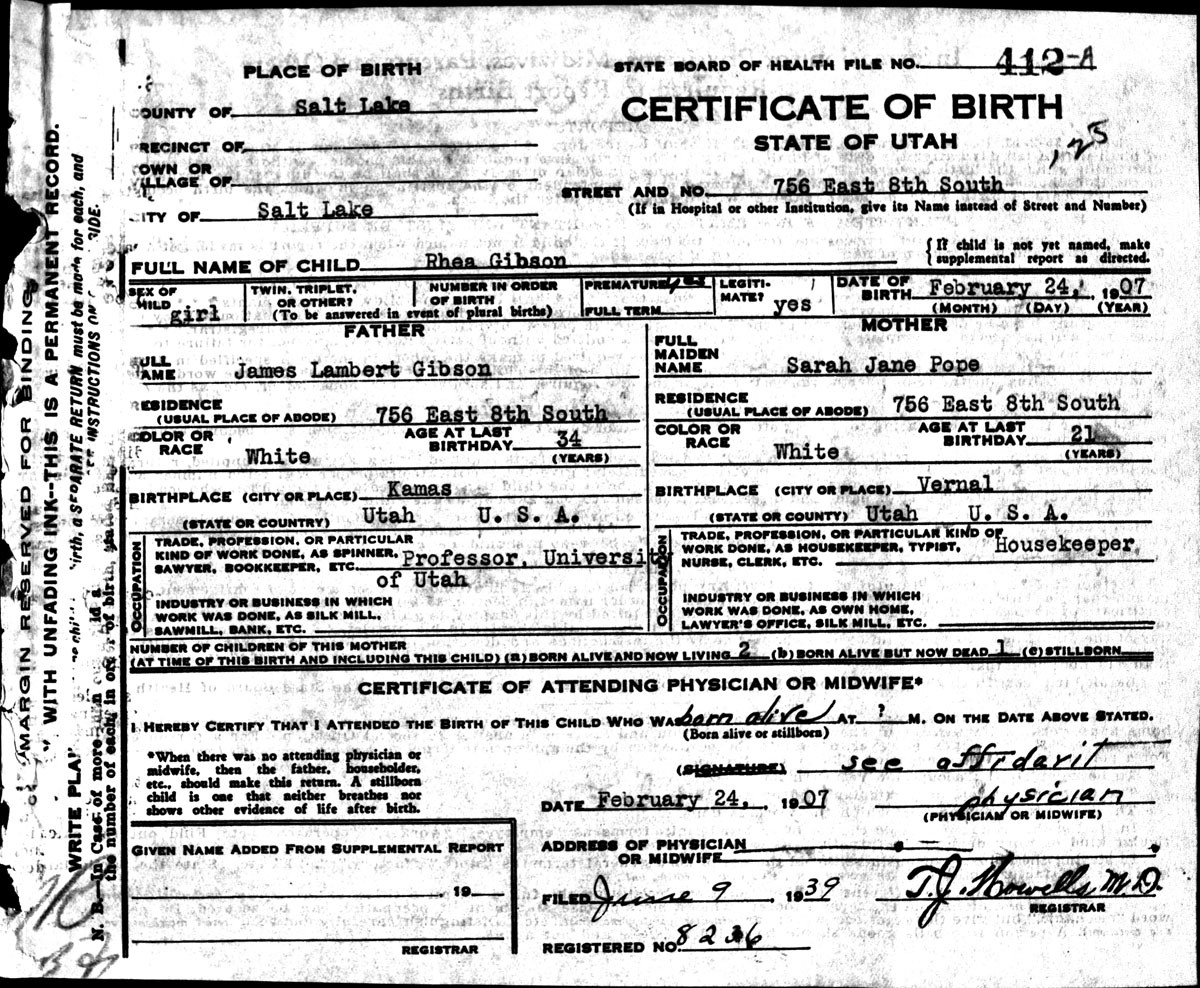 PLACE OF BIRTH
STATE BOARD OF HEALTH FILE NO. 412-A
COUNTY OF Salt Lake
CERTIFICATE OF BIRTH
STATE OF UTAH
,25
RECINCT OF
OWN OR
ILLAGE OF
STREET AND NO. 756 East 8th South
(If in Hospital or other Institution, give its Name instead of Street and Number)
CITY OF Salt Lake
FULL NAME OF CHILD Rhea Gibson
{If child is not yet named, make
supplemental report as directed.
SEX OF
HILD girl
TWIN, TRIPLET,
OR OTHER?
NUMBER IN ORDER
OF BIRTH
(To be answered in event of plural births)
PREMATURE yes
FULL TERM
LEGITI-
MATE? yes
DATE OF
BIRTH February 24, 1907
(MONTH) (DAY) (YEAR)
FATHER
ULL
AME James Lambert Gibson
RESIDENCE
(USUAL PLACE OF ABODE) 756 East 8th South
COLOR OR
RACE White
AGE AT LAST
BIRTHDAY 34
(YEARS)
BIRTHPLACE (CITY OR PLACE) Kamas
(STATE OR COUNTRY) Utah U. S. A.
OCCUPATION
TRADE, PROFESSION, OR PARTICULAR
KIND OF WORK DONE, AS SPINNER,
SAWYER, BOOKKEEPER, ETC. Professor, Universit
of Utah
INDUSTRY OR BUSINESS IN WHICH
WORK WAS DONE, AS SILK MILL,
SAWMILL, BANK, ETC.
MOTHER
FULL
MAIDEN
NAME Sarah Jane Pope
RESIDENCE
(USUAL PLACE OF ABODE) 756 East 8th South
COLOR OR
RACE White
AGE AT LAST
BIRTHDAY 21
(YEARS)
BIRTHPLACE (CITY OR PLACE) Vernal
(STATE OR COUNTY) Utah U. S. A.
OCCUPATION
TRADE, PROFESSION, OR PARTICULAR KIND OF
WORK DONE, AS HOUSEKEEPER, TYPIST, Housekeeper
NURSE, CLERK, ETC.
INDUSTRY OR BUSINESS IN WHICH
WORK WAS DONE, AS OWN HOME,
LAWYER'S OFFICE, SILK MILL, ETC.
NUMBER OF CHILDREN OF THIS MOTHER
(AT TIME OF THIS BIRTH AND INCLUDING THIS CHILD) (a) BORN ALIVE AND NOW LIVING 2 (b) BORN ALIVE BUT NOW DEAD 1 (c) STILLBORN
CERTIFICATE OF ATTENDING PHYSICIAN OR MIDWIFE*
I HEREBY CERTIFY THAT I ATTENDED THE BIRTH OF THIS CHILD WHO WAS born alive AT ? M. ON THE DATE ABOVE STATED.
(Born alive or stillborn)
*When there was no attending physician or
midwife, then the father, householder,
etc., should make this return. A stillborn
child is one that neither breathes nor
shows other evidence of life after birth.
(SIGNATURE) see affidavit
DATE February 24, 1907 physician
(PHYSICIAN OR MIDWIFE)
ADDRESS OF PHYSICIAN
OR MIDWIFE
GIVEN NAME ADDED FROM SUPPLEMENTAL REPORT
19
REGISTRAR
FILED June 9, 1939 T.J. Howells, M.D.
REGISTRAR
REGISTERED NO. 8236
MARGIN RESERVED FOR BINDING
WITH UNFADING INK--THIS IS A PERMANENT RECORD.
WRITE PLAI
N. B.--In Case of more
birth, a SEPARATE RETURN must be made for each, and
the number of each, in order of birth,
INSTRUCTIONS ON